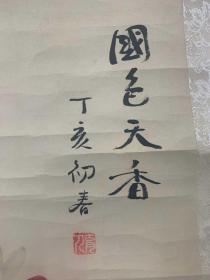 國色天香
丁亥初春